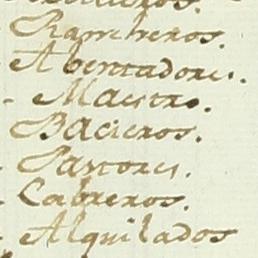 Rancheros.
Abentadores.
- Maestro.
Bacieros.
Pastores.
Cabreros.
Alquilados